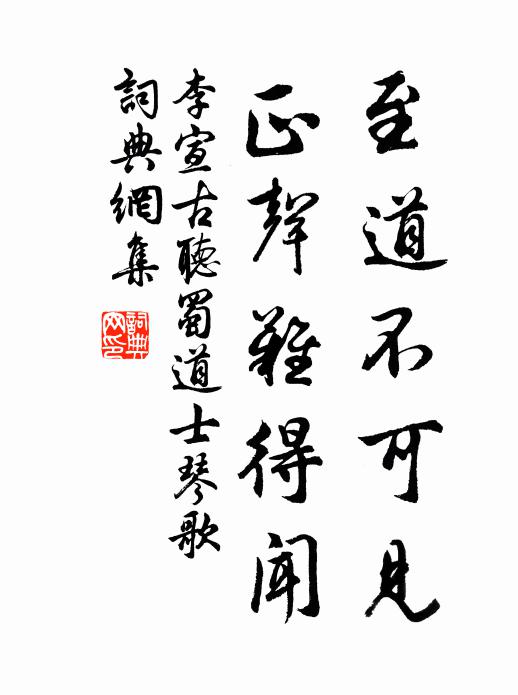 至道不可見
正聲難得聞
李宣古聽蜀道士琴歌
詞典網集
詞典網印